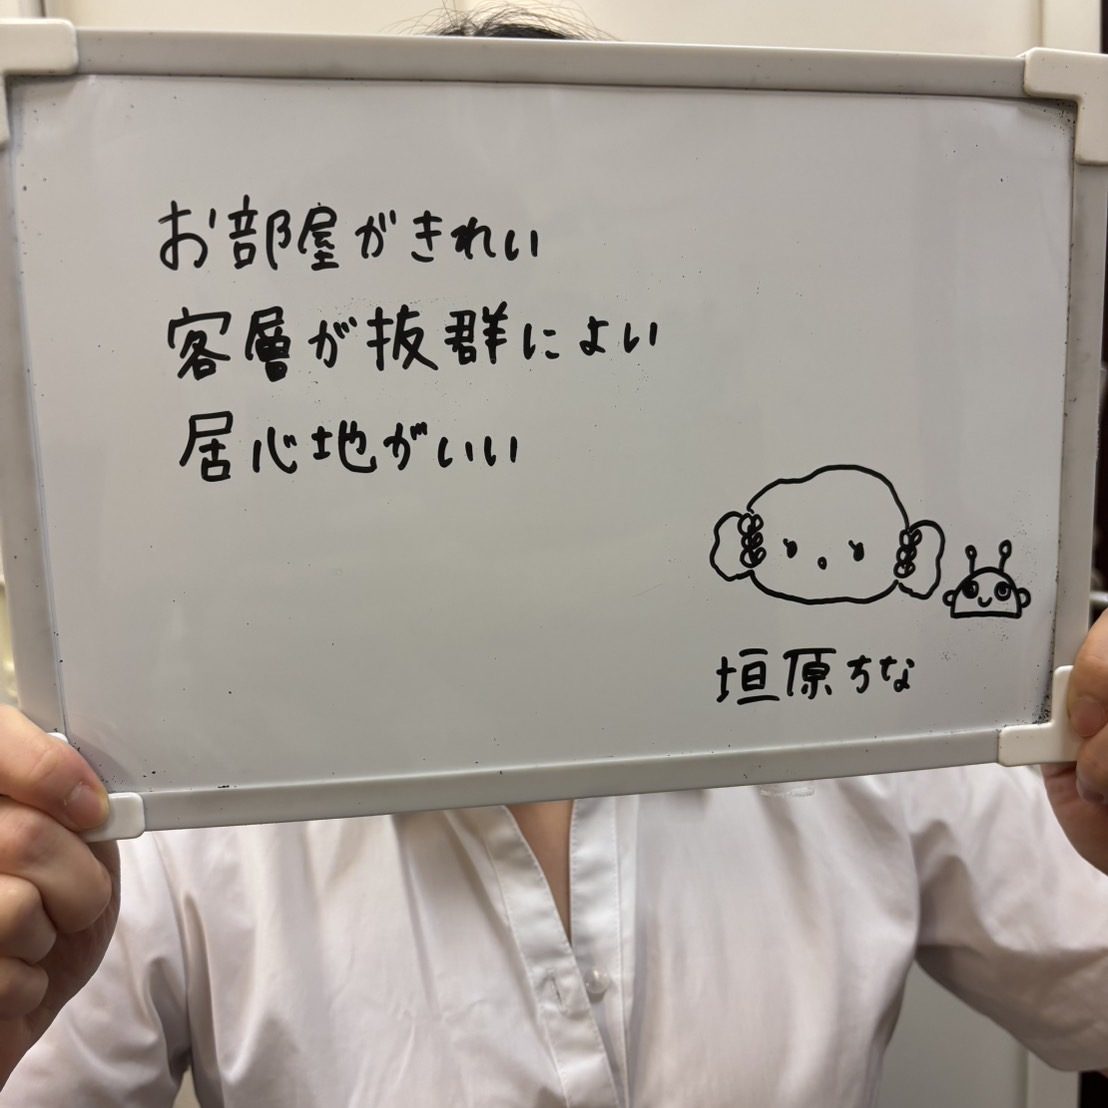 お部屋がきれい
客層が抜群によい
居心地がいい
垣原ちな